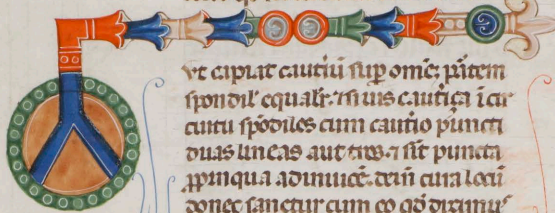 ut capiat cautiũ sup omẽ ptem
spondil' equalr. ⁊ si uis c̃autica ĩ cir
cuitu spõdiles cum cautio pũncti
duas lineas aut tres. ⁊ sit puncta
ꝓpinqua adinuicẽ. deĩ cura locũ
donec sanetur cum eo qđ diximus